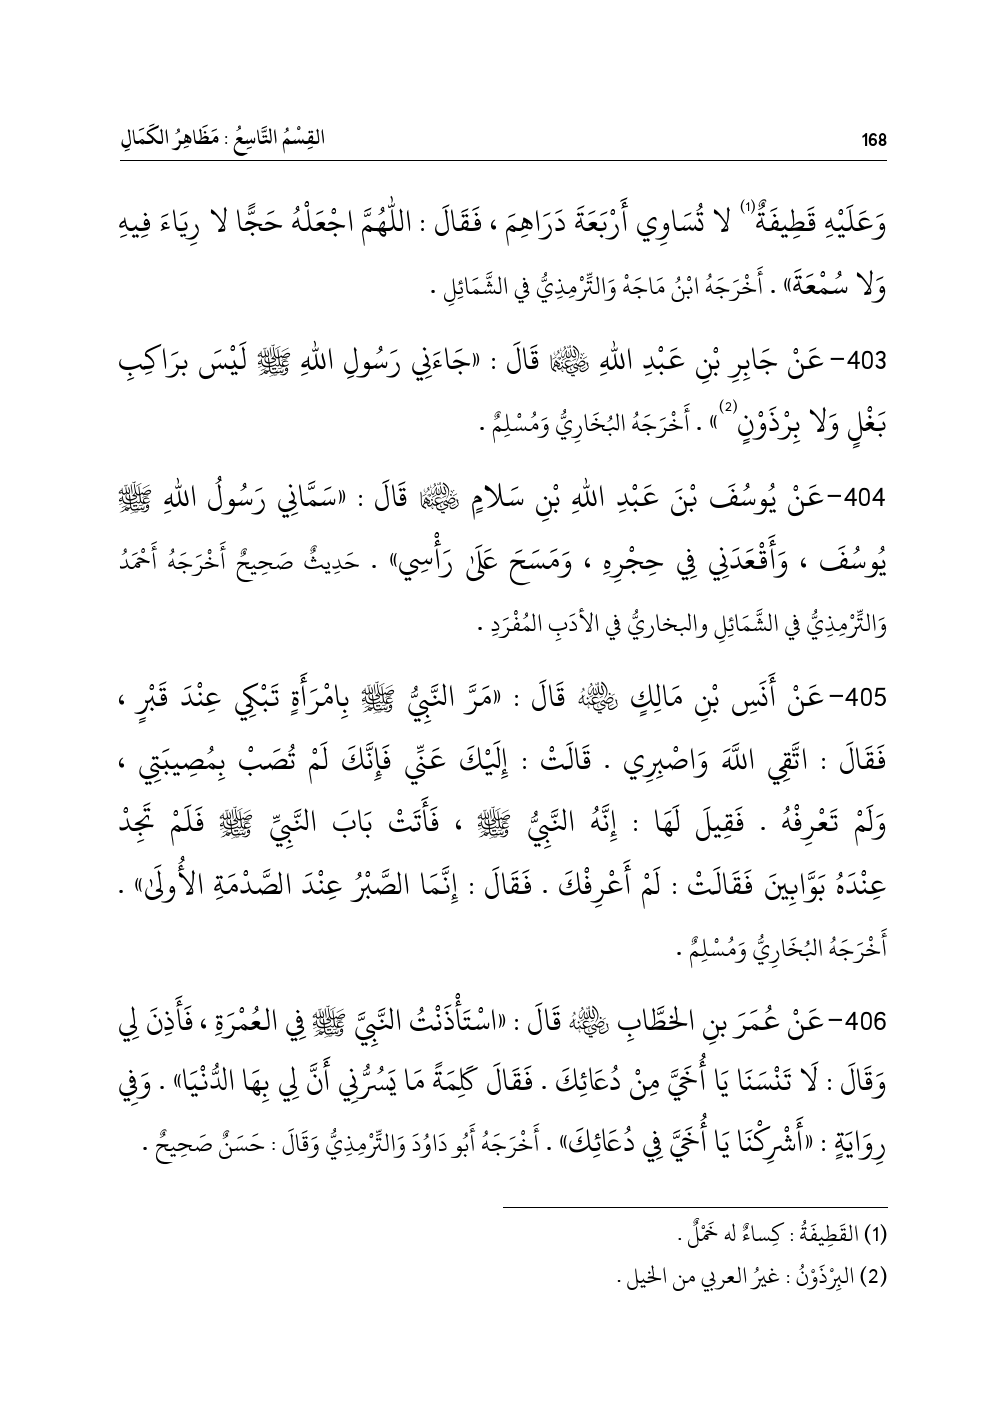 168 القِسْمُ التَّاسِعُ : مَظَاهِرُ الكَمَالِ
وَعَلَيْهِ قَطِيفَةٌ(1) لا تُسَاوِي أَرْبَعَةَ دَرَاهِمَ ، فَقَالَ : اللّٰهُمَّ اجْعَلْهُ حَجًّا لا رِيَاءَ فِيهِ
وَلا سُمْعَةَ» . أَخْرَجَهُ ابْنُ مَاجَهْ وَالتِّرْمِذِيُّ في الشَّمَائِلِ .
403- عَنْ جَابِرِ بْنِ عَبْدِ اللهِ رضي الله عنهما قَالَ : «جَاءَنِي رَسُولِ اللهِ ﷺ لَيْسَ برَاكِبِ
بَغْلٍ وَلا بِرْذَوْنٍ(2)» . أَخْرَجَهُ البُخَارِيُّ وَمُسْلِمٌ .
404- عَنْ يُوسُفَ بْنَ عَبْدِ اللهِ بْنِ سَلامٍ رضي الله عنهما قَالَ : «سَمَّانِي رَسُولُ اللهِ ﷺ
يُوسُفَ ، وَأَقْعَدَنِي فِي حِجْرِهِ ، وَمَسَحَ عَلَىٰ رَأْسِي» . حَدِيثٌ صَحِيحٌ أَخْرَجَهُ أَحْمَدُ
وَالتِّرْمِذِيُّ في الشَّمَائِلِ والبخاريُّ في الأدَبِ المُفْرَدِ .
405- عَنْ أَنَسِ بْنِ مَالِكٍ رضي الله عنه قَالَ : «مَرَّ النَّبِيُّ ﷺ بِامْرَأَةٍ تَبْكِي عِنْدَ قَبْرٍ ،
فَقَالَ : اتَّقِي اللَّهَ وَاصْبِرِي . قَالَتْ : إِلَيْكَ عَنِّي فَإِنَّكَ لَمْ تُصَبْ بِمُصِيبَتِي ،
وَلَمْ تَعْرِفْهُ . فَقِيلَ لَهَا : إِنَّهُ النَّبِيُّ ﷺ ، فَأَتَتْ بَابَ النَّبِيِّ ﷺ فَلَمْ تَجِدْ
عِنْدَهُ بَوَّابِينَ فَقَالَتْ : لَمْ أَعْرِفْكَ . فَقَالَ : إِنَّمَا الصَّبْرُ عِنْدَ الصَّدْمَةِ الأُولَىٰ» .
أَخْرَجَهُ البُخَارِيُّ وَمُسْلِمٌ .
406- عَنْ عُمَرَ بنِ الخطَّابِ رضي الله عنه قَالَ : «اسْتَأْذَنْتُ النَّبِيَّ ﷺ فِي العُمْرَةِ ، فَأَذِنَ لِي
وَقَالَ : لَا تَنْسَنَا يَا أُخَيَّ مِنْ دُعَائِكَ . فَقَالَ كَلِمَةً مَا يَسُرُّنِي أَنَّ لِي بِهَا الدُّنْيَا» . وَفِي
رِوَايَةٍ : «أَشْرِكْنَا يَا أُخَيَّ فِي دُعَائِكَ» . أَخْرَجَهُ أَبُو دَاوُدَ وَالتِّرْمِذِيُّ وَقَالَ : حَسَنٌ صَحِيحٌ .
(1) القَطِيفَةُ : كِساءٌ له خَمْلٌ .
(2) البِرْذَوْنُ : غيرُ العربي من الخيل .